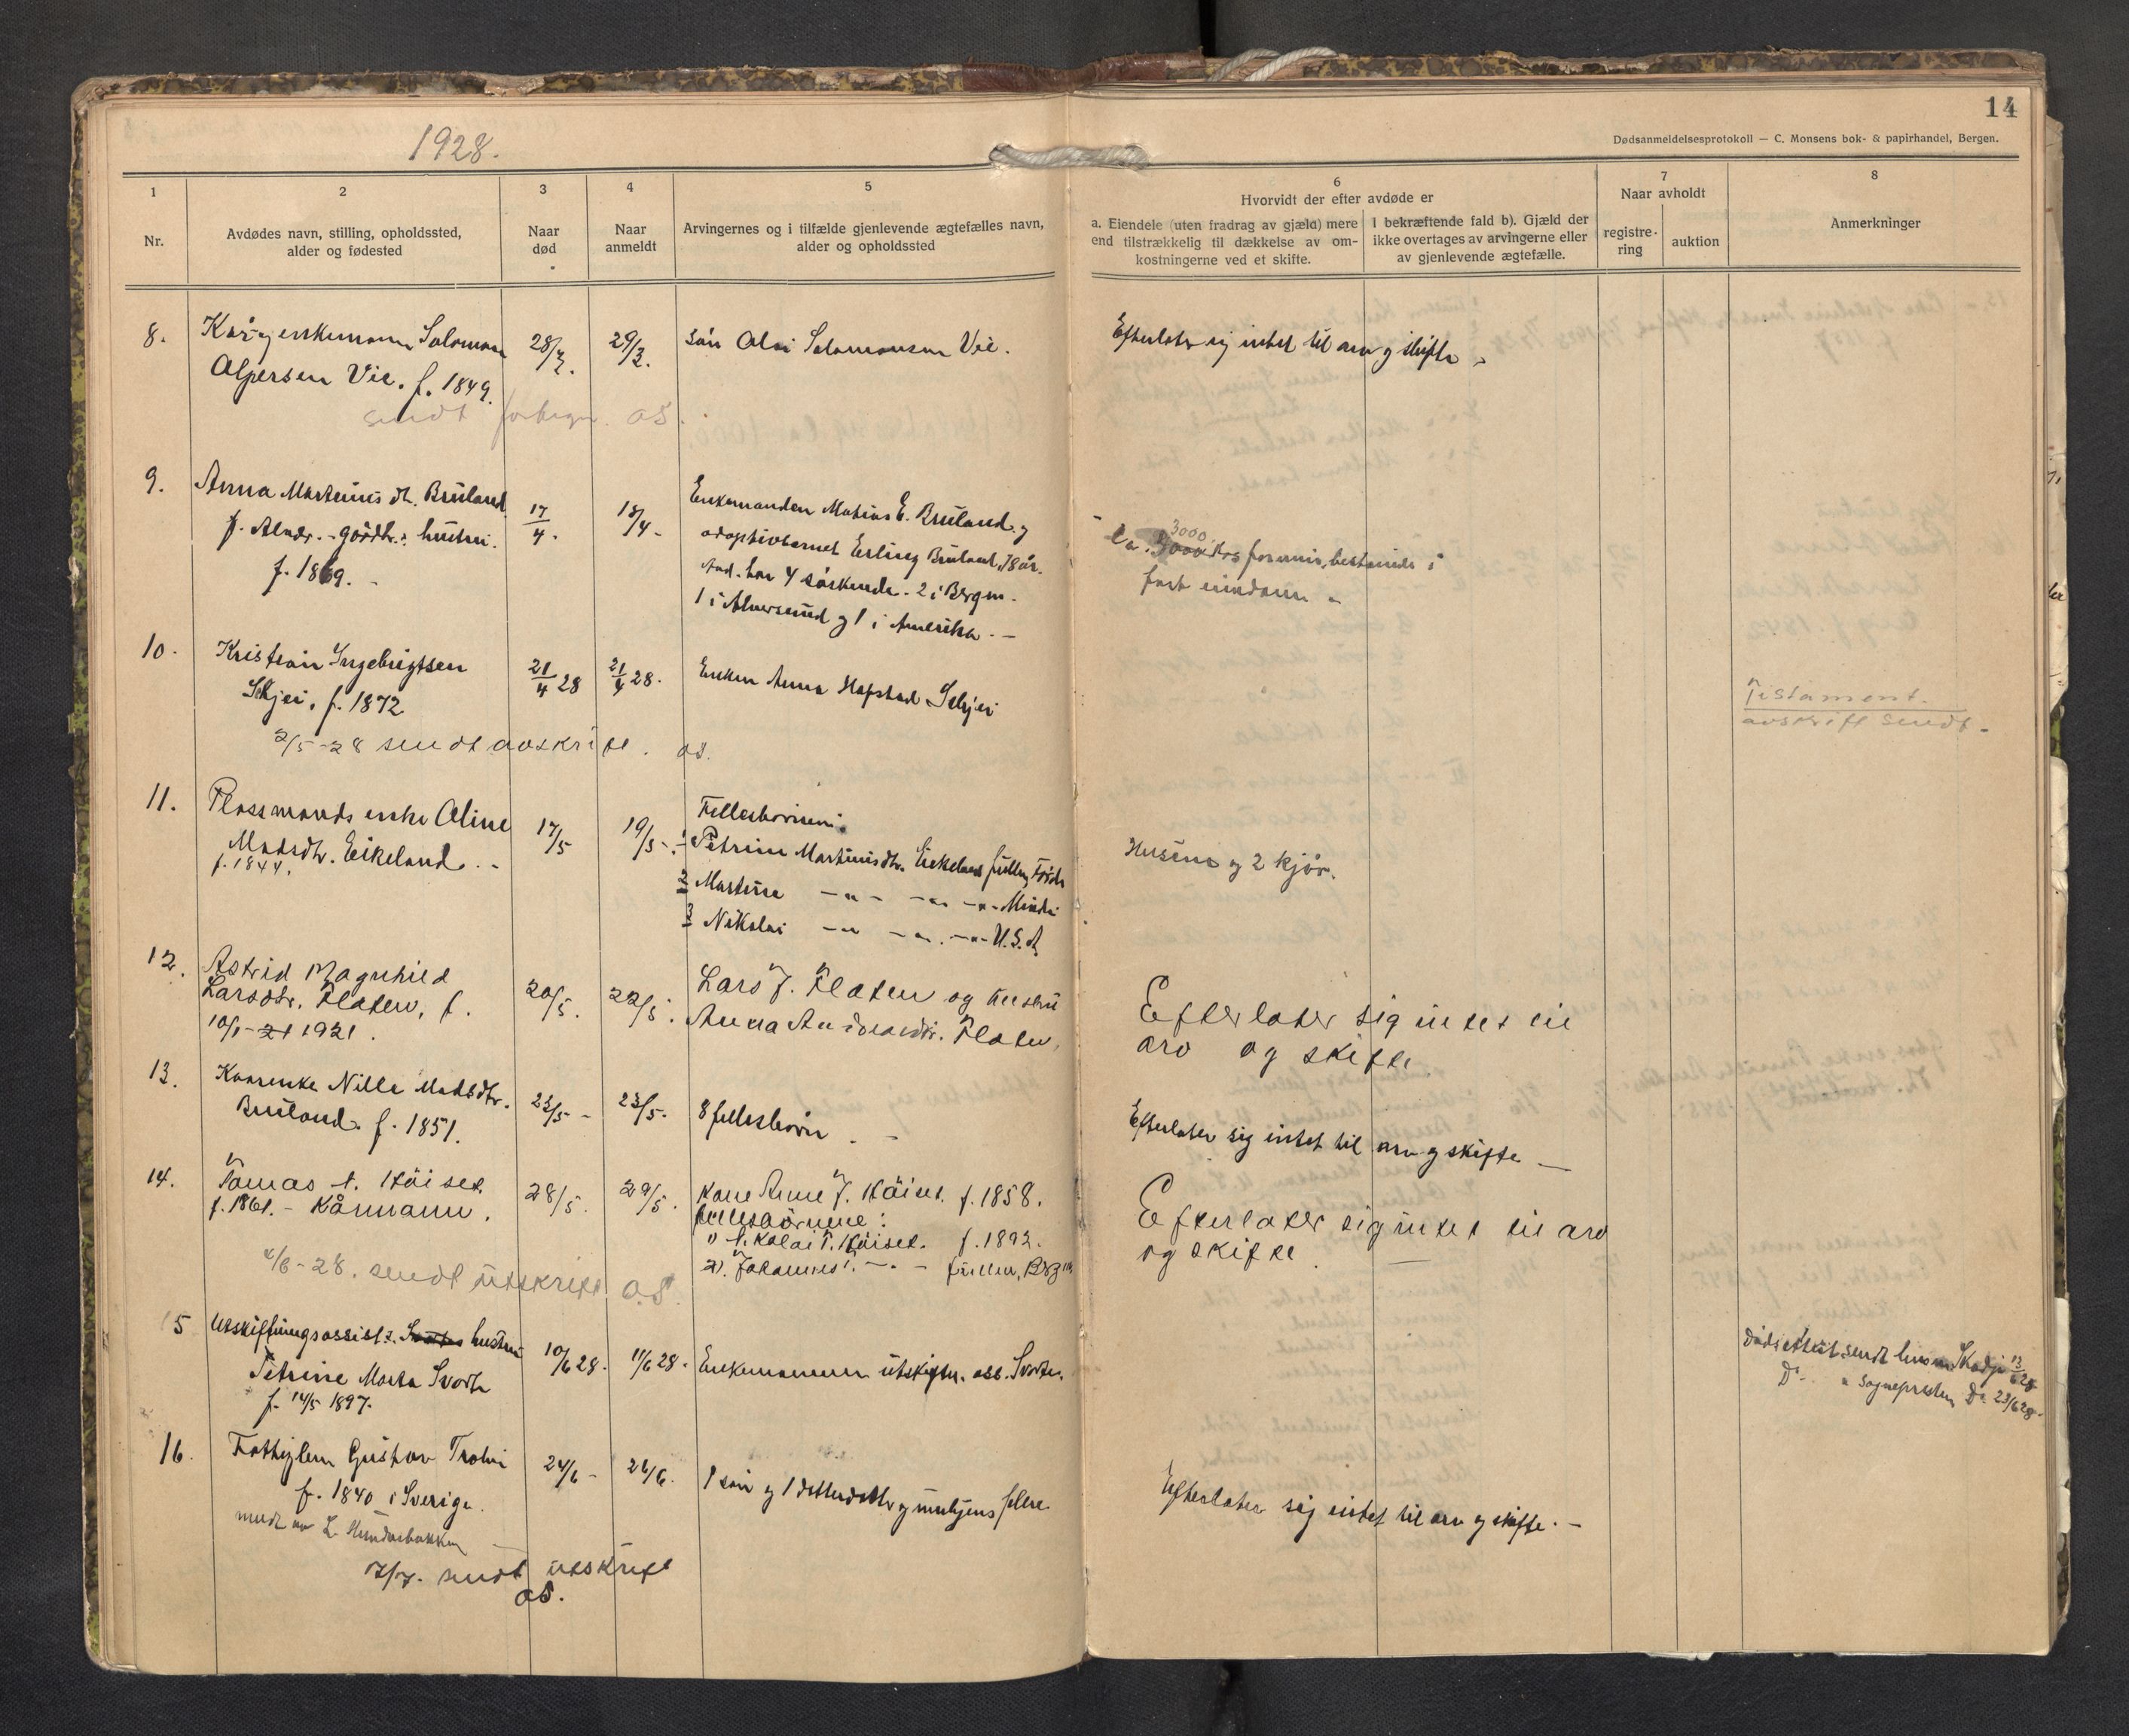 14
1928.
Dødsanmeldelsesprotokoll — C. Monsens bok- & papirhandel, Bergen.
1
Nr.
2
Avdødes navn, stilling, opholdssted,
alder og fødested
3
Naar
død
4
Naar
anmeldt
5
Arvingernes og i tilfælde gjenlevende ægtefælles navn,
alder og opholdssted
6
Hvorvidt der efter avdøde er
a. Eiendele (uten fradrag av gjæld) mere
end tilstrækkelig til dækkelse av om-
kostningerne ved et skifte.
I bekræftende fald b). Gjæld der
ikke overtages av arvingerne eller
av gjenlevende ægtefælle.
7
Naar avholdt
registre-
ring
auktion
8
Anmerkninger
8.
Salomon
Vie. f. 1849.
28/3.
29/3.
sön Salomonsen Vie.
Efterlater sig intet til arv og skifte
sendt
9.
Anna Martinus dt. Bruland
f. hustru.
f. 1869.
17/4.
18/4-
Enkemanden Matias E. Bruland og
adoptivbarnet Erling Bruland, 18 år.
har 4 söskende. 2 i Bergen.
1 i Alversund og 1 i Amerika.
Ca. 3000 bestaaende i
fast eiendom
10.
Kristian Ingebrigtsen
f. 1872
21/4 28
21/4 28.
Enken Anna Hafstad
Testament.
avskrift sendt.
2/5-28 sendt avskrift. OS.
11.
Plassmands enke Oline
Madsdtr. Eikeland.
f. 1844.
17/5
19/5
Fellesbørnene:
1 Petrine Martinusdtr. Eikeland
2 Martine
3 Nikolai U.S.A
Husene og 2 kjør.
12.
Astrid Magnhild
Larsdtr. Flaten, f.
10/1-21 1921.
20/5.
22/5.
Lars J. Flaten og hustru
Anna Flaten.
Efterlater sig intet til
arv og skifte.
13.
Kaarenke Nille Madsdtr.
Bruland. f. 1851.
23/5-
23/5.
8 fellesbörn.
Efterlater sig intet til arv og skifte —
14.
Tomas Höiset
f. 1861. - Kårmann.
28/5.
29/5.
Kone Anne J. Höiset. f. 1858.
fellesbörnene:
1) Nikolai T. Höiset. f. 1892.
2). Johannes T.
Efterlater sig intet til arv
og skifte.
4/6-28. sendt utskrift O.S.
15
Utskiftningsassist:s hustru
Petrine Marta
f. 14/5 1897.
10/6 28.
11/6 28.
Enkemannen utskiftn. ass.
Dödsattest sendt Skodje 13/6 28
Do. " Sognepresten Do. 23/6 28.
16.
Gustav
f. 1840 i Sverige.
24/6-
26/6.
1 sön og 1
Efterlater sig intet til arv og skifte. —
7/7. sendt utskrift
OS.